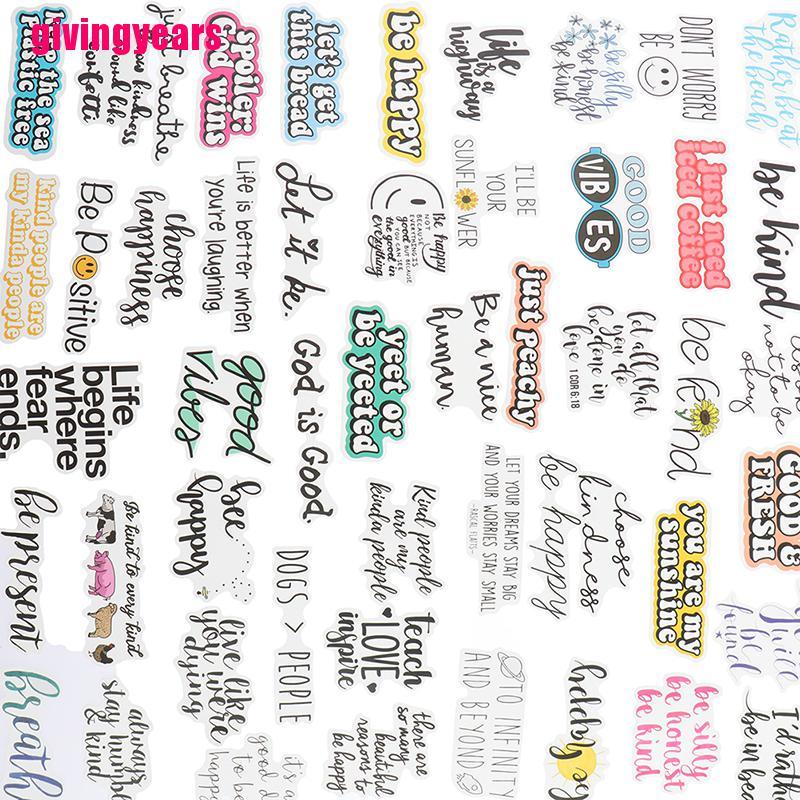 givingyears
keep the sea
plastic free
just breathe
kindness
around like
confetti
spoiler:
God wins
let's get
this bread
be happy
life
is a
highway
be silly
be honest
be kind
DON'T WORRY
BE
Rather be at
the beach
kind people are
my kinda people
Be Positive
choose
happiness
Life is better when
you're laughing.
Let it be.
Be happy
NOT
BECAUSE
EVERYTHING IS
good BUT BECAUSE
YOU CAN SEE
the good in
EVERYTHING
I'LL BE
YOUR
SUNFLOWER
GOOD
VIBES
i just need
iced coffee
be kind
Life
begins
where
fear
ends.
good
vibes
God is Good.
yeet or
be yeeted
Be a nice
human.
just peachy
let all that
you do
be done in
love 1 COR 16:18
be kind
not to be
okay
be present
Be kind to every kind
bee
happy
DOGS > PEOPLE
Kind people
are my
kinda people
LET YOUR DREAMS STAY BIG
AND YOUR WORRIES STAY SMALL
-RASCAL FLATTS-
choose
kindness
be happy
you are my
sunshine
GOOD &
FRESH
breath
always
stay humble
& kind
live like
you were
dying
it's a
good d
to be
happy
teach
LOVE
inspire
there are
so many
beautiful
reasons to
be happy
TO INFINITY
AND BEYOND
be happy
be silly
be honest
be kind
be
found
I'd rath
be in be